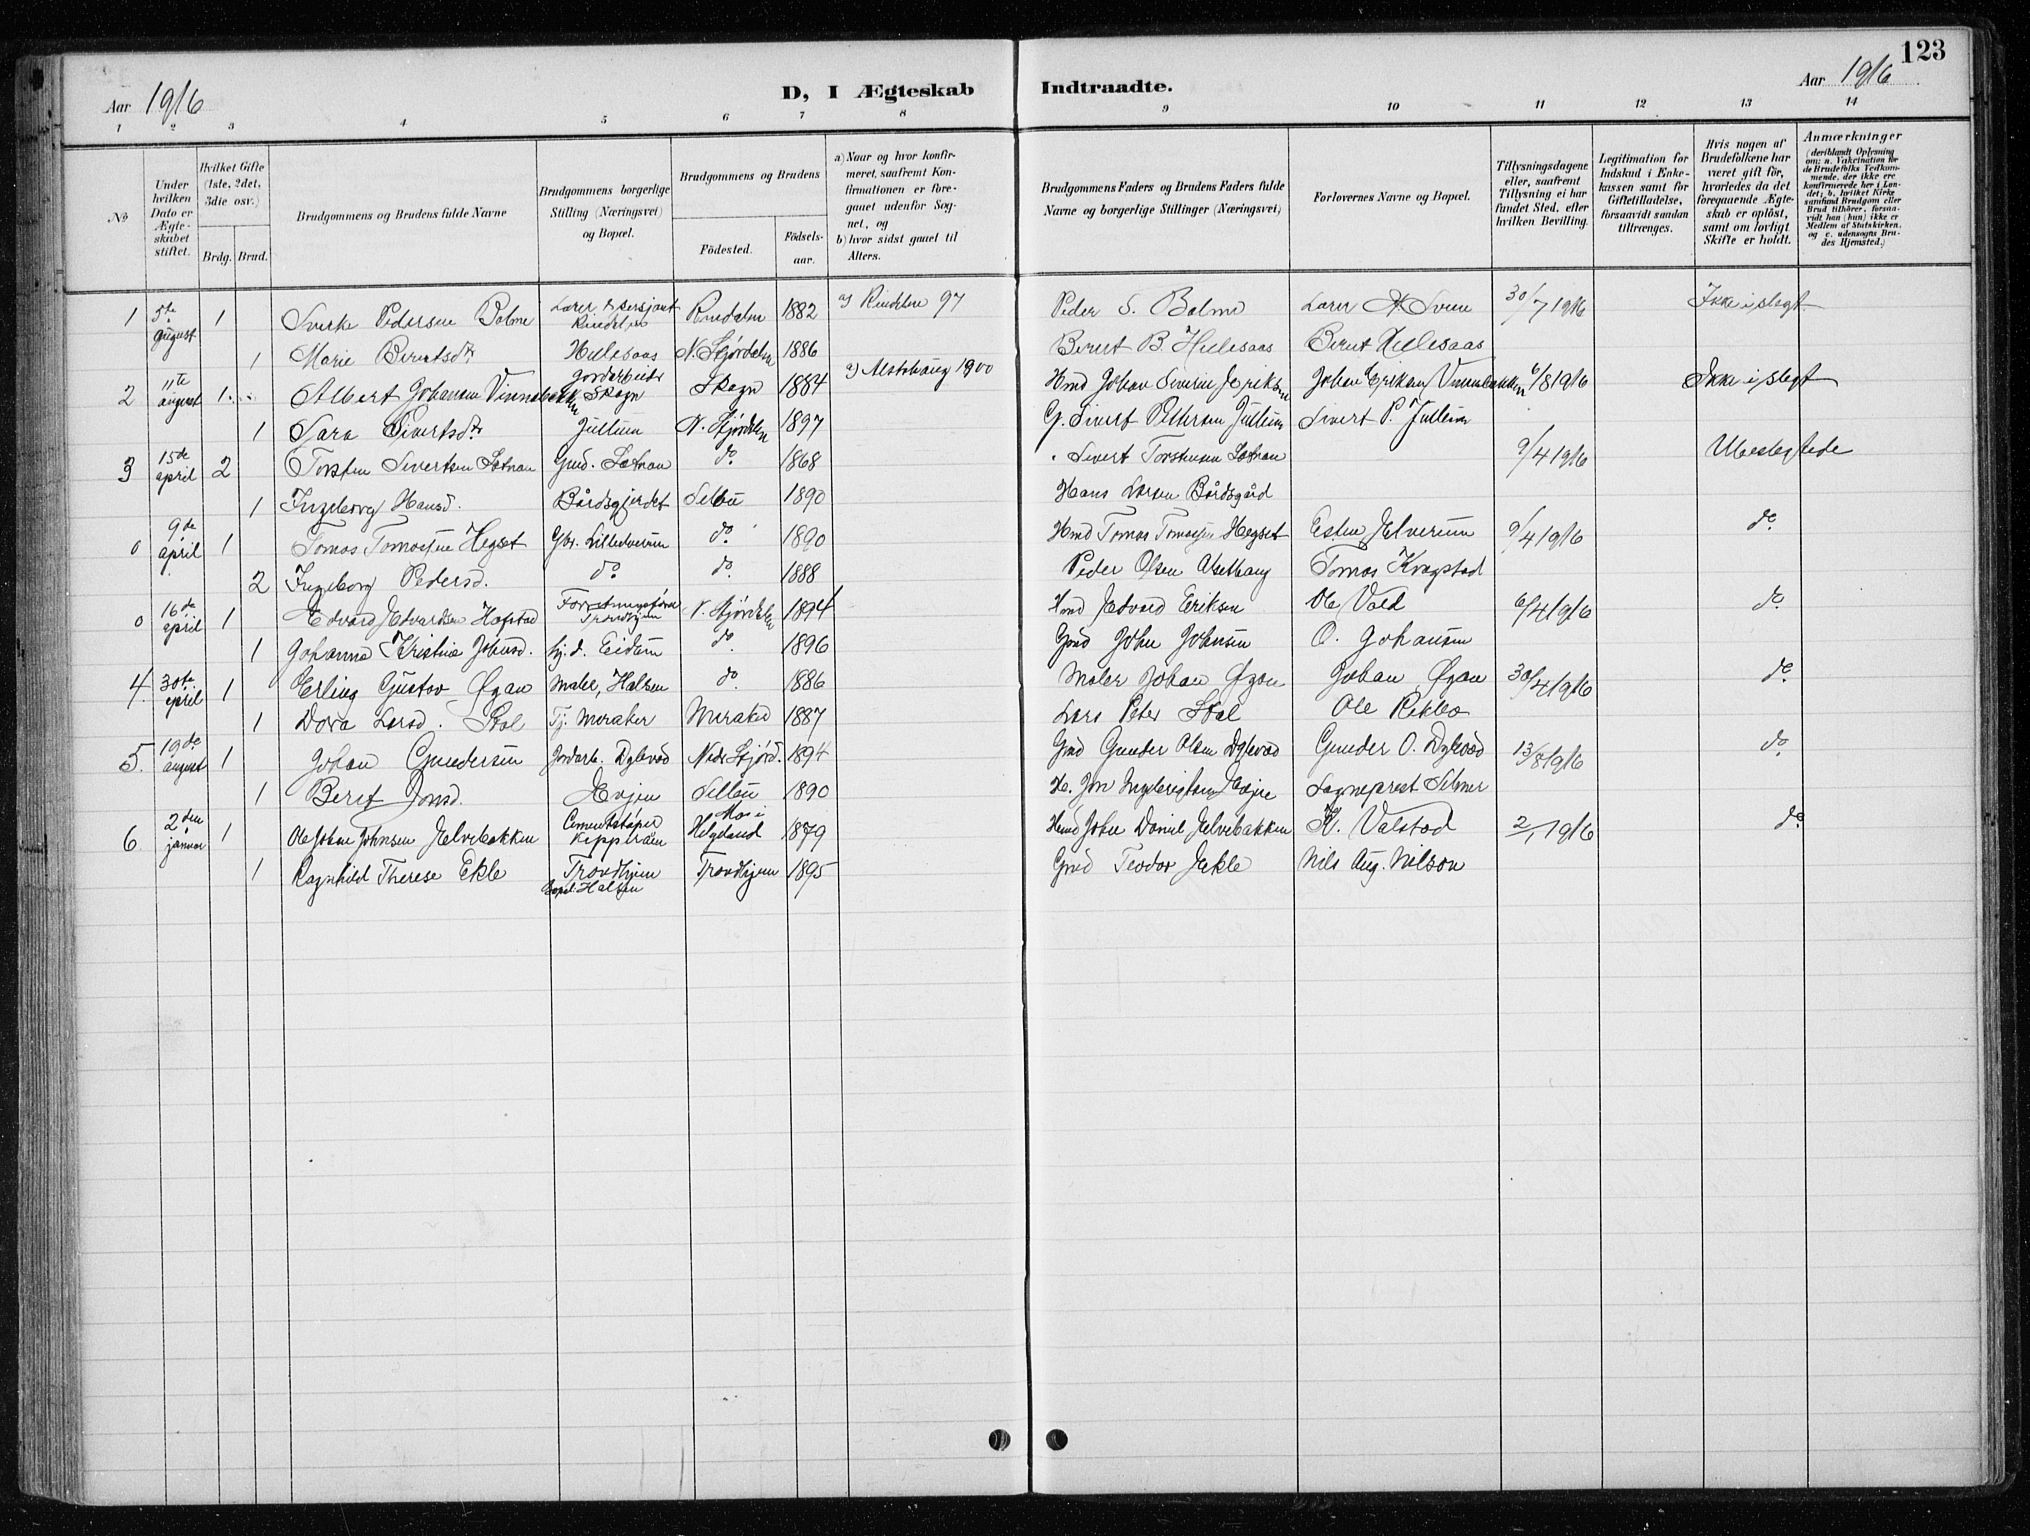 123
Aar 1916
D, I Ægteskab Indtraadte.
Aar 1916
1 2 3 4 5 6 7 8 9 10 11 12 13 14
No
Under hvilken Dato er Ægteskabet stiftet.
Hvilket Gifte (1ste, 2det, 3die osv.)
Brdg. Brud.
Brudgommens og Brudens fulde Navne
Brudgommens borgerlige Stilling (Næringsvei) og Bopæl.
Brudgommens og Brudens
Födested. Födselsaar.
a) Naar og hvor konfirmeret, saafremt Konfirmationen er foregaaet udenfor Sognet, og
b) hvor sidst gaaet til Alters.
Brudgommens Faders og Brudens Faders fulde Navne og borgerlige Stillinger (Næringsvei)
Forlovernes Navne og Bopæl.
Tillysningsdagene eller, saafremt Tillysning ei har fundet Sted, efter hvilken Bevilling.
Legitimation for Indskud i Enkekassen samt for Giftetilladelse, forsaavidt saadan tiltrænges.
Hvis nogen af Brudefolkene har været gift för, hvorledes da det foregaaende Ægteskab er oplöst, samt om lovligt Skifte er holdt.
Anmærkninger (deriblandt Oplysning om: a. Vakcination for de Brudefolks Vedkommende, der ikke ere konfirmerede her i Landet; b. hvilket Kirkesamfund Brudgom eller Brud tilhörer, forsaavidt han (hun) ikke er Medlem af Statskirken, og c. udensogns Brudes Hjemsted.)
1 5te august 1 Sverke Pedersen Bolme Lærer & Sersjant Rindalen Rindalen 1882 a) Rindalen 97 Peder S. Bolme Lærer 30/7 1916 Ikke i slegt
1 Marie Berntsdtr Hellesaas N. Stjørdalen 1886 Bernt B. Hellesaas Bernt Hellesaas
2 11te august 1 Albert Johansen Vinnebakken Jordarbeider Skogn Skogn 1884 a) Alstahaug 1900 Hmd Johan Severin Eriksen Johan Eriksen Vinnebakken 6/8 1916 Ikke i slegt
1 Sara Sivertsdtr Jullum N. Stjørdalen 1897 G. Sivert Pettersen Jullum Sivert P. Jullum
3 15de april 2 Torsten Sivertsen Sætnan Gmd. Sætnan do 1868 Sivert Torstensen Sætnan 9/4 1916 Ubeslegtede
1 Ingeborg Hansd. Bårdsgjerdet Selbu 1890 Hans Larsen Bårdsgård
0 9de april 1 Tomas Tomassen Hegset Gbr. Lilleelverum do 1890 Hmd Tomas Tomassen Hegset Esten Elverum 9/4 1916 do
2 Ingeborg Pedersd. do do 1888 Peder Olsen Tomas Kragstad
0 16de april 1 Edvard Edvardsen Hofstad Trondhjem N. Stjørdalen 1894 Hmd Edvard Eriksen Ole Vold 6/4 1916 do
1 Johanna Kristine Johnsd. hj. d. Eidum do 1896 Gmd John Johnsen O. Johansen
4. 30te april 1 Erling Gustav Øgan Maler, Halsen do 1886 Maler Johan Øgan Johan Øgan 30/4 1916 do
1 Dora Larsd. Stal Tj. Meraker Meraker 1887 Lars Peter Stal Ole Rekbo
5. 19de august 1 Johan Gundersen Jordarb. Dybvad Nedre Stjørd. 1894 Gmd Gunder Olsen Dybvad Gunder O. Dybvad 13/8 1916 do
1 Beret Jonsd. Evjen Selbu 1890 Jon Ingebrigtsen Evjen Sogneprest Selmer
6 2den januar 1 Ole Johan Johnsen Elvebakken Cementstøper Mo i Helgeland 1879 Hmd John Daniel Elvebakken K. Valstad 2/1 1916 do
1 Ragnhild Therese Ekle Trondhjem Bopæl: Halsen Trondhjem 1895 Gmd Teodor Ekle Nils Aug. Nilson